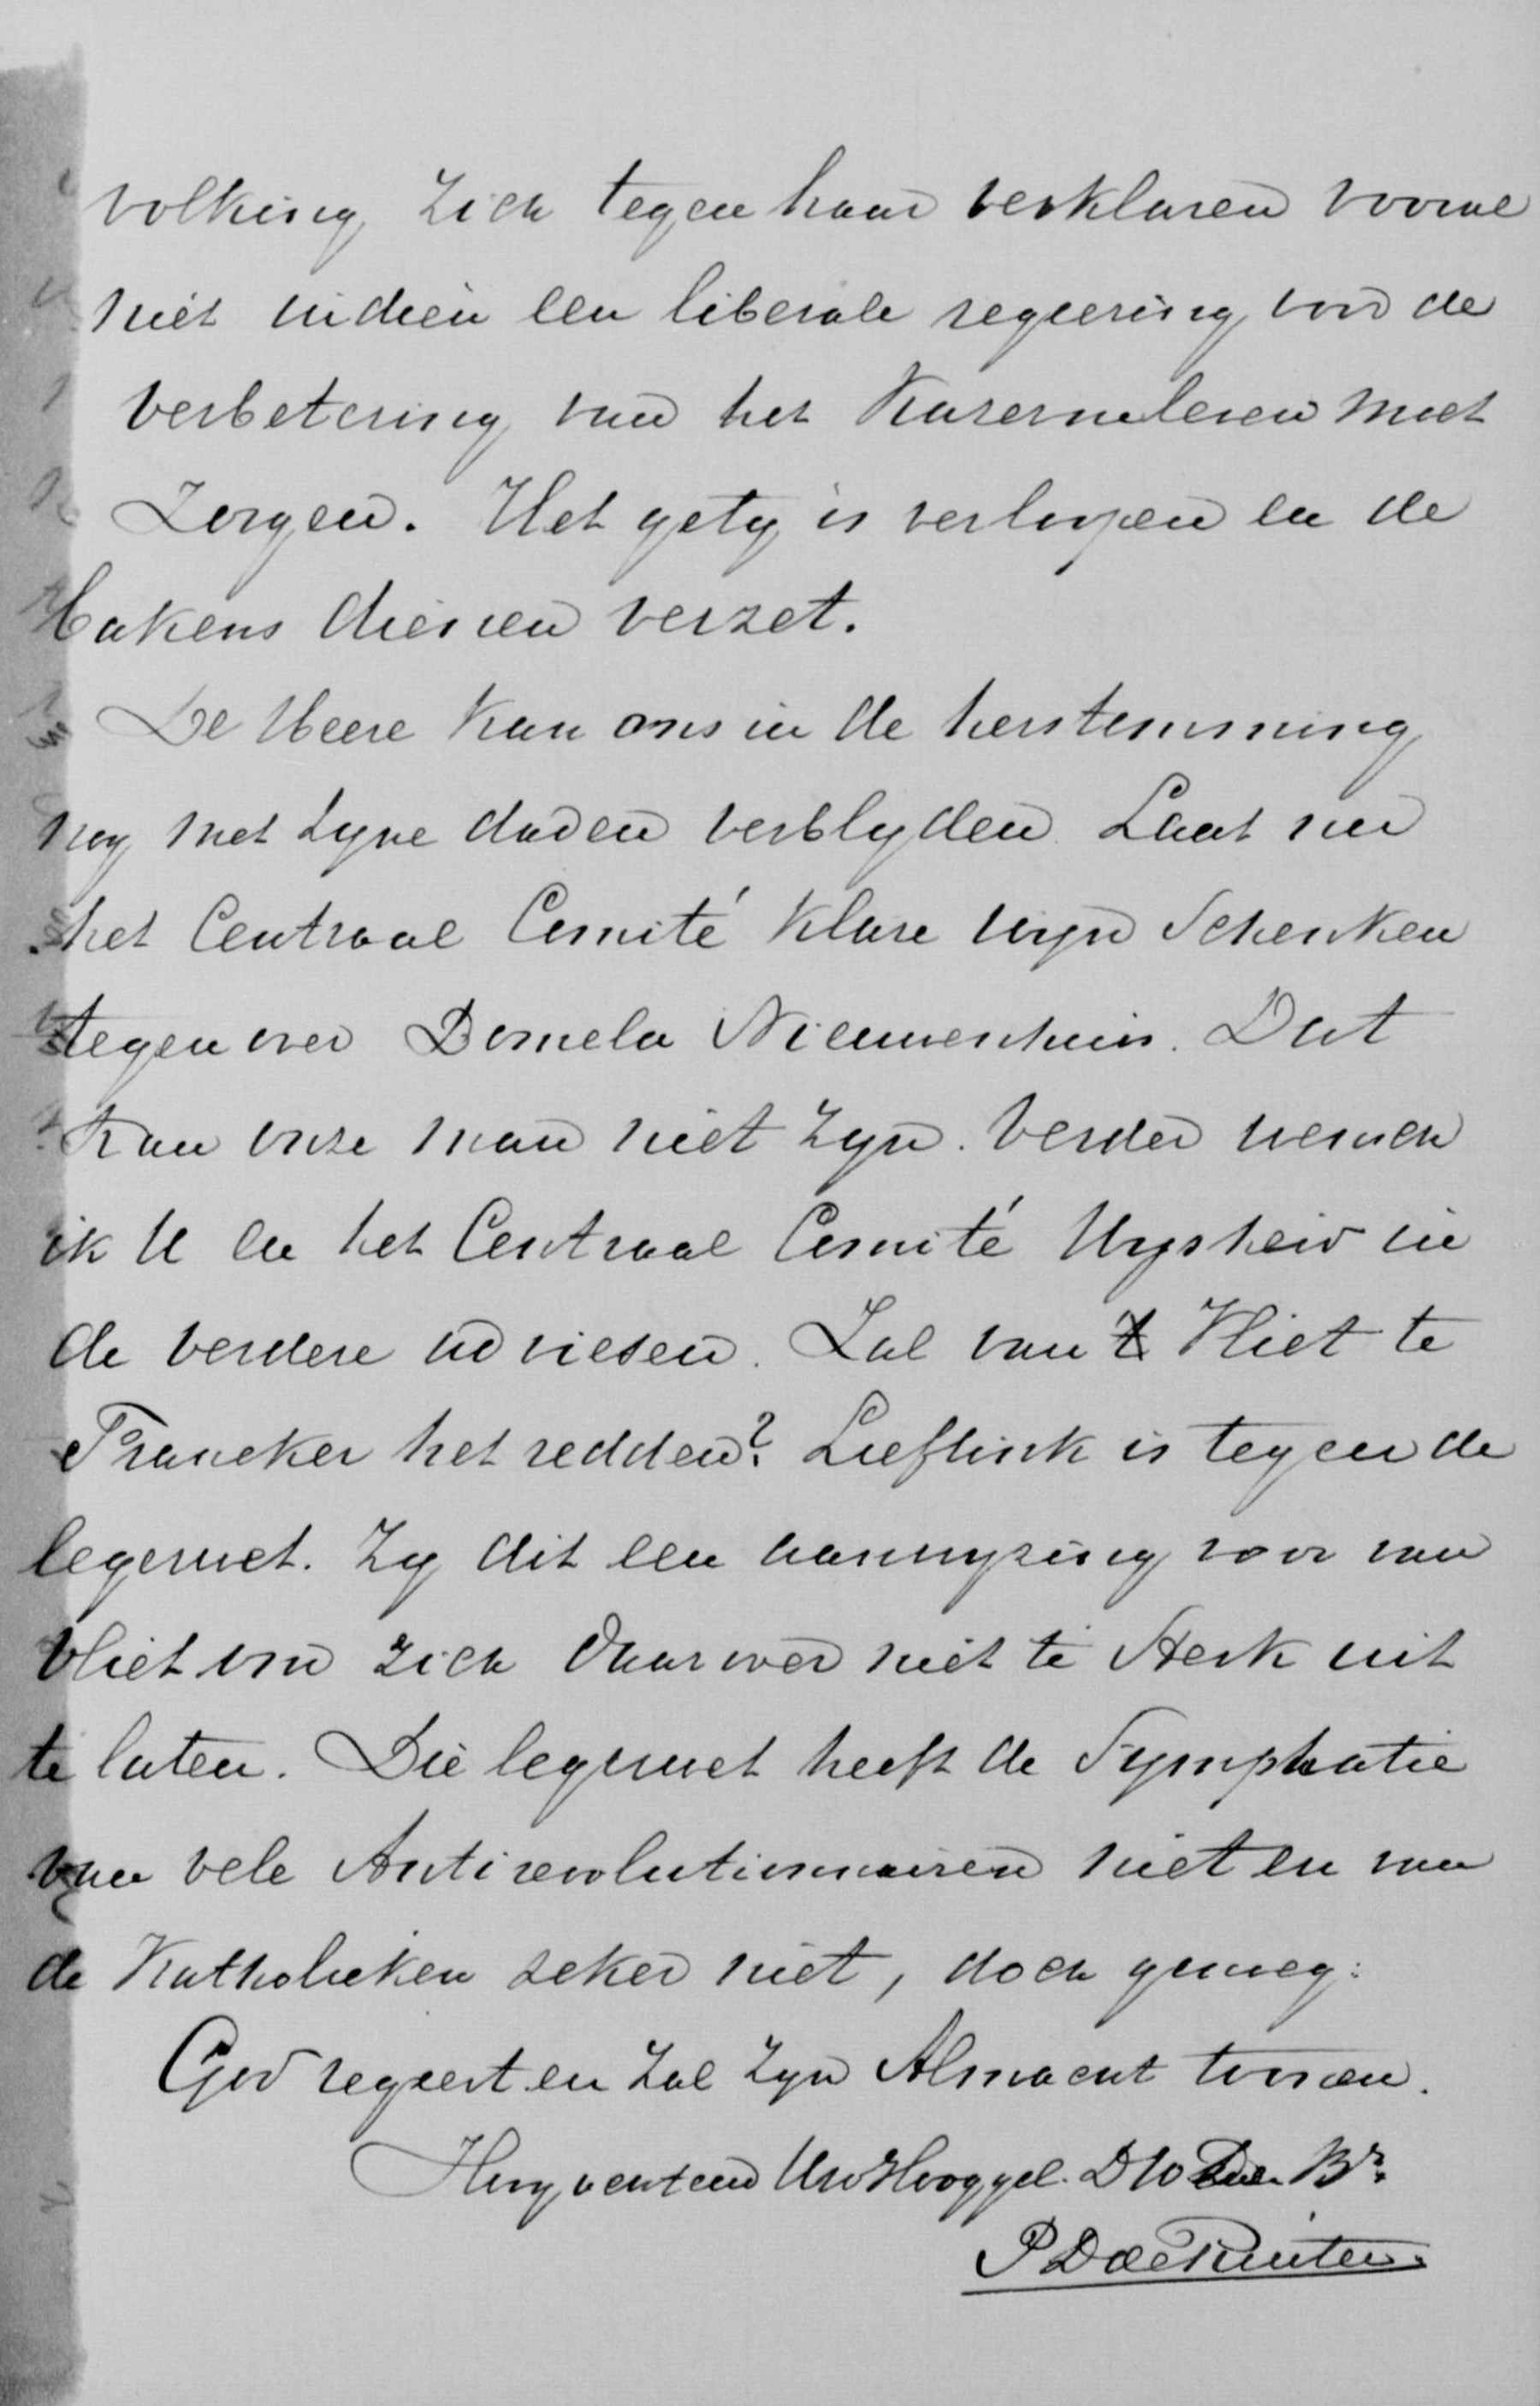 volking zich tegen haar verklaren vooral
niet indien een liberale regeering voor de
verbetering van het Kazerneleven moet
Zorgen. Het gety is verloopen en de
Bakens dienen verzet.
De Heere kan ons in de herstemming
nog met Zyne daden verblyden. Laat nu
het Centraal Comité klare wyn Schenken
tegenover Domela Nieuwenhuis. Dat
kan onze man niet Zyn. Verder wensch
ik U en het Centraal Comité Wysheid in
de verdere adviesen. Zal van Vliet te
Franeker het redden? Lieftink is tegen de
legerwet. Zy dit een aanwyzing voor van
Vliet om zich daarover niet te Sterk uit
te laten. Die legerwet heeft de Symphatie
van vele Antirevolutionnairen niet en van
de Katholieken zeker niet, doch genoeg:
God regeert en Zal Zyn Almacht toonen.
Hoogachtend Uw Hooggel. DW Br.